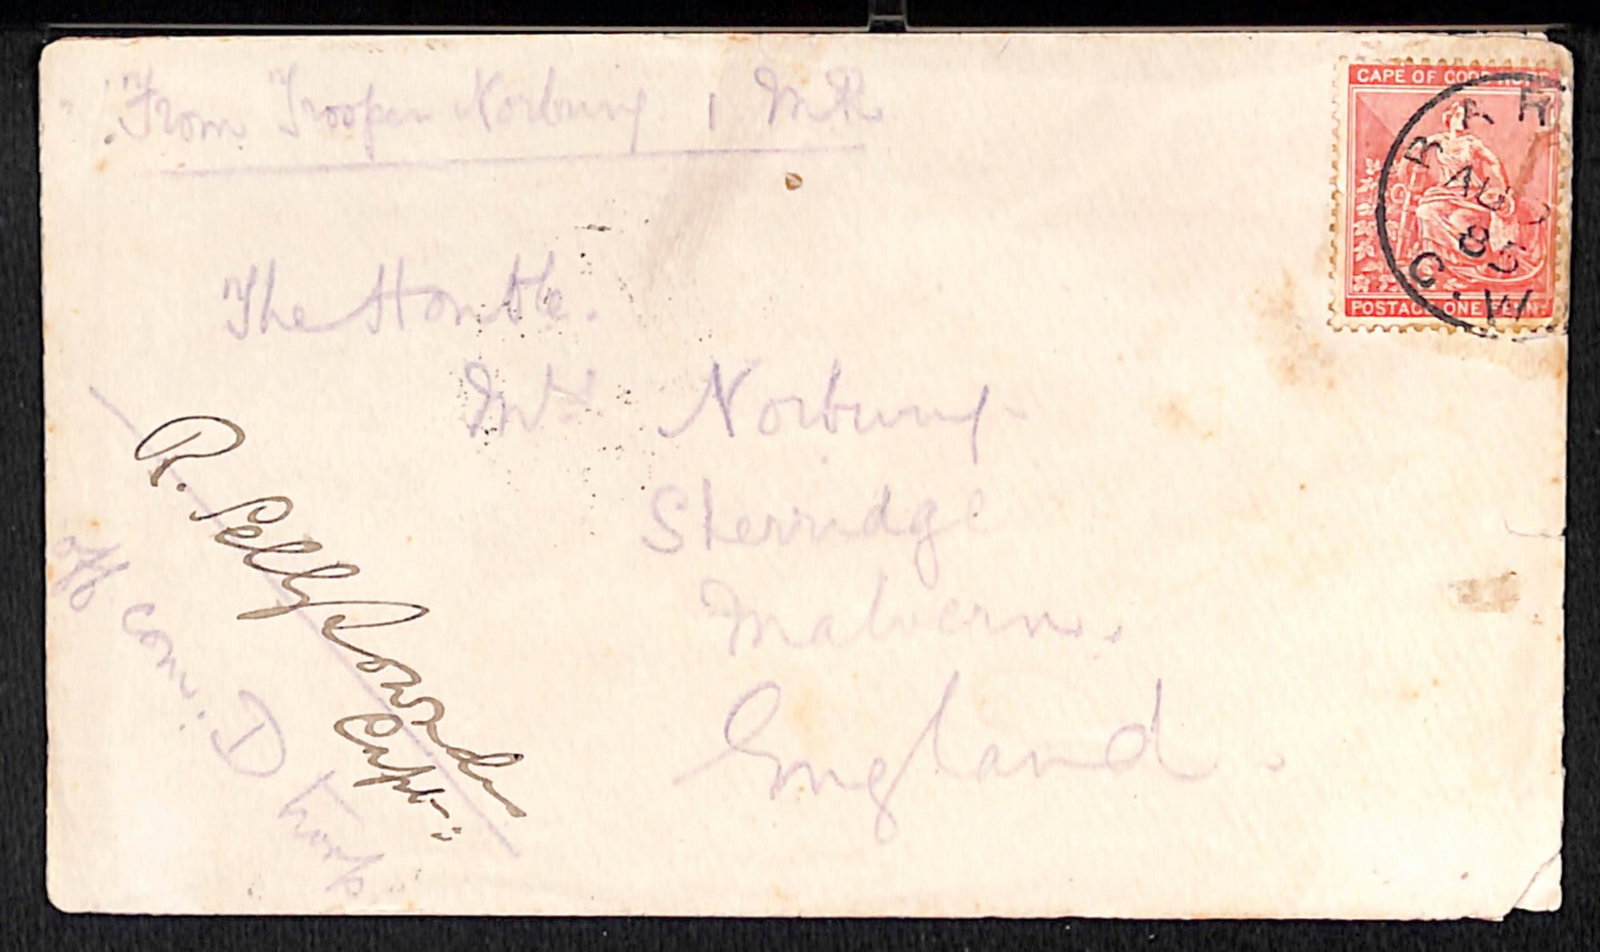 From Trooper Norbury 1 M R
CAPE OF GOOD HOPE
BAR
AU 7
85
G.W.
POSTAGE ONE PENNY
The Honble.
Mrs Norbury
Sherridge
Malvern.
England.
R. Selby Lowndes
Capt.
off Com. D Troop